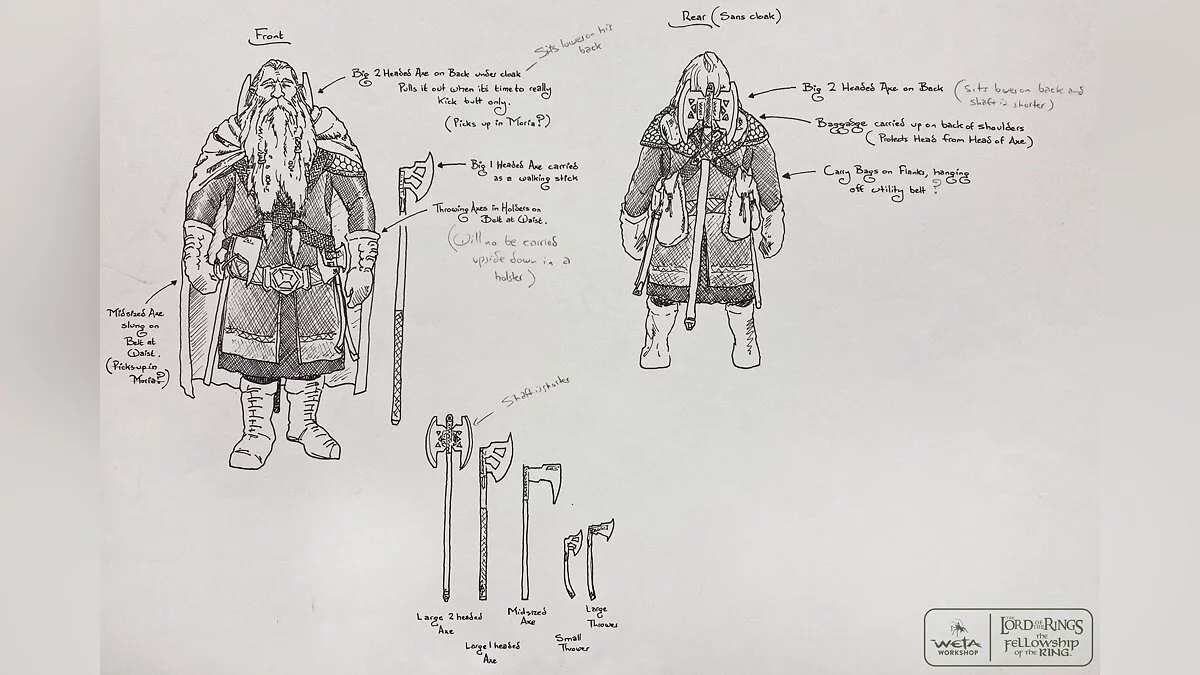 Front
Big 2 Headed Axe on Back under cloak
Pulls it out when its time to really
Kick butt only.
(Picks up in Moria?)
Sits lower on his
back
Big 1 Headed Axe carried
as a walking stick
Throwing Axes in Holders on
Belt at Waist.
(Will no be carried
upside down in a
holster)
Midsized Axe
slung on
Belt at
Waist.
(Picks up in
Moria?)
Rear (Sans cloak)
Big 2 Headed Axe on Back
(Sits lower on back and
shaft is shorter)
Baggadge carried up on back of shoulders
(Protects Head from Head of Axe)
Carry Bags on Flanks, hanging
off utility belt?
Shaft is shorter
Large 2 headed
Axe
Large 1 headed
Axe
Midsized
Axe
Small
Thrower
Large
Thrower
WETA
WORKSHOP
THE
LORD OF THE RINGS
THE
FELLOWSHIP
OF THE RING